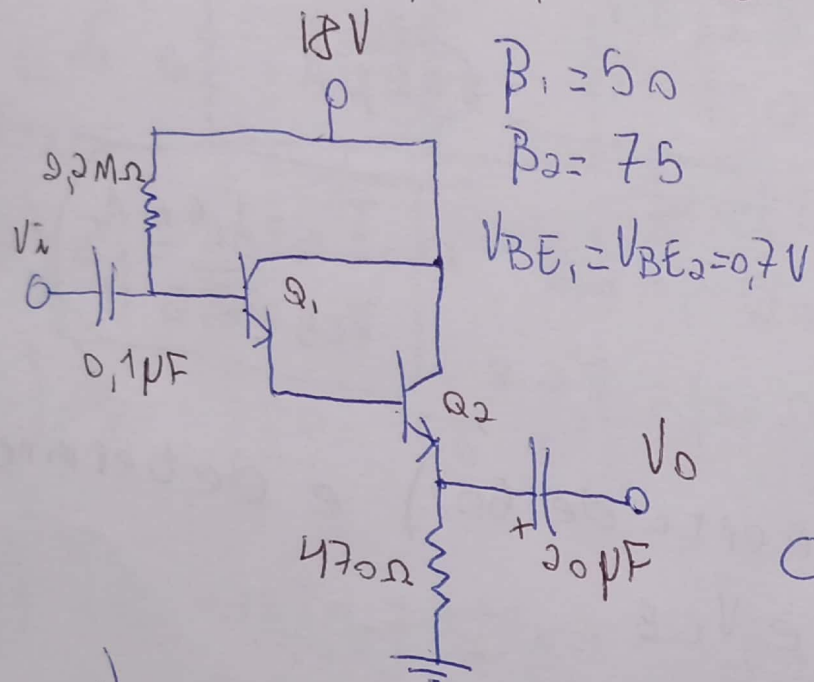 18V
β₁ = 50
β2 = 75
VBE₁ = VBE2 = 0,7V
2,2MΩ
Vi
Q₁
0,1µF
Q2
VO
470Ω
+
20µF